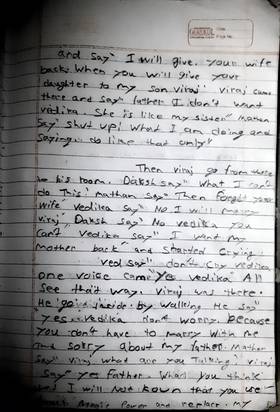 and say" I will give. your wife
back. When you will give your
daughter to my son viraj' viraj came
there and say" father I don't want
vedika. She is like my sister" mathan
say' shut up! What I am doing and
saying. do like that only"
Then viraj go from there
his room. Daksh say" What I can't
do This' mathan say" Then forget your
wife' vedika say" No I will marry
viraj' Daksh say' No vedika you
can't" vedika say" I want my
mother back" and started crying
ved say" don't cry vedika
one voice came "yes vedika" All
see that way. viraj was there.
He going inside by walking He say"
"yes vedika don't worry. because
you don't have to marry with me
and sorry about my father. Mathan
say" viraj what are you Talking' viraj
say" yes father. What you think
I will not known that you use
Power and replace. my